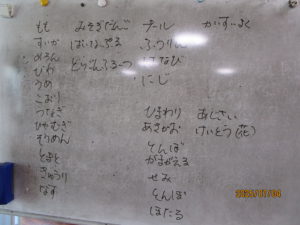 もも
すいか
めろん
びわ
うめ
こおり
うなぎ
ひやむぎ
そうめん
とまと
きゅうり
なす
みそぎだんご
ぱいなっぷる
どらごんふるーつ
プール
ふうりん
はなび
にじ
かいすいよく
ひまわり
あさがお
とんぼ
かまがえる
せみ
とんぼ
ほたる
あじさい
けいとう(花)